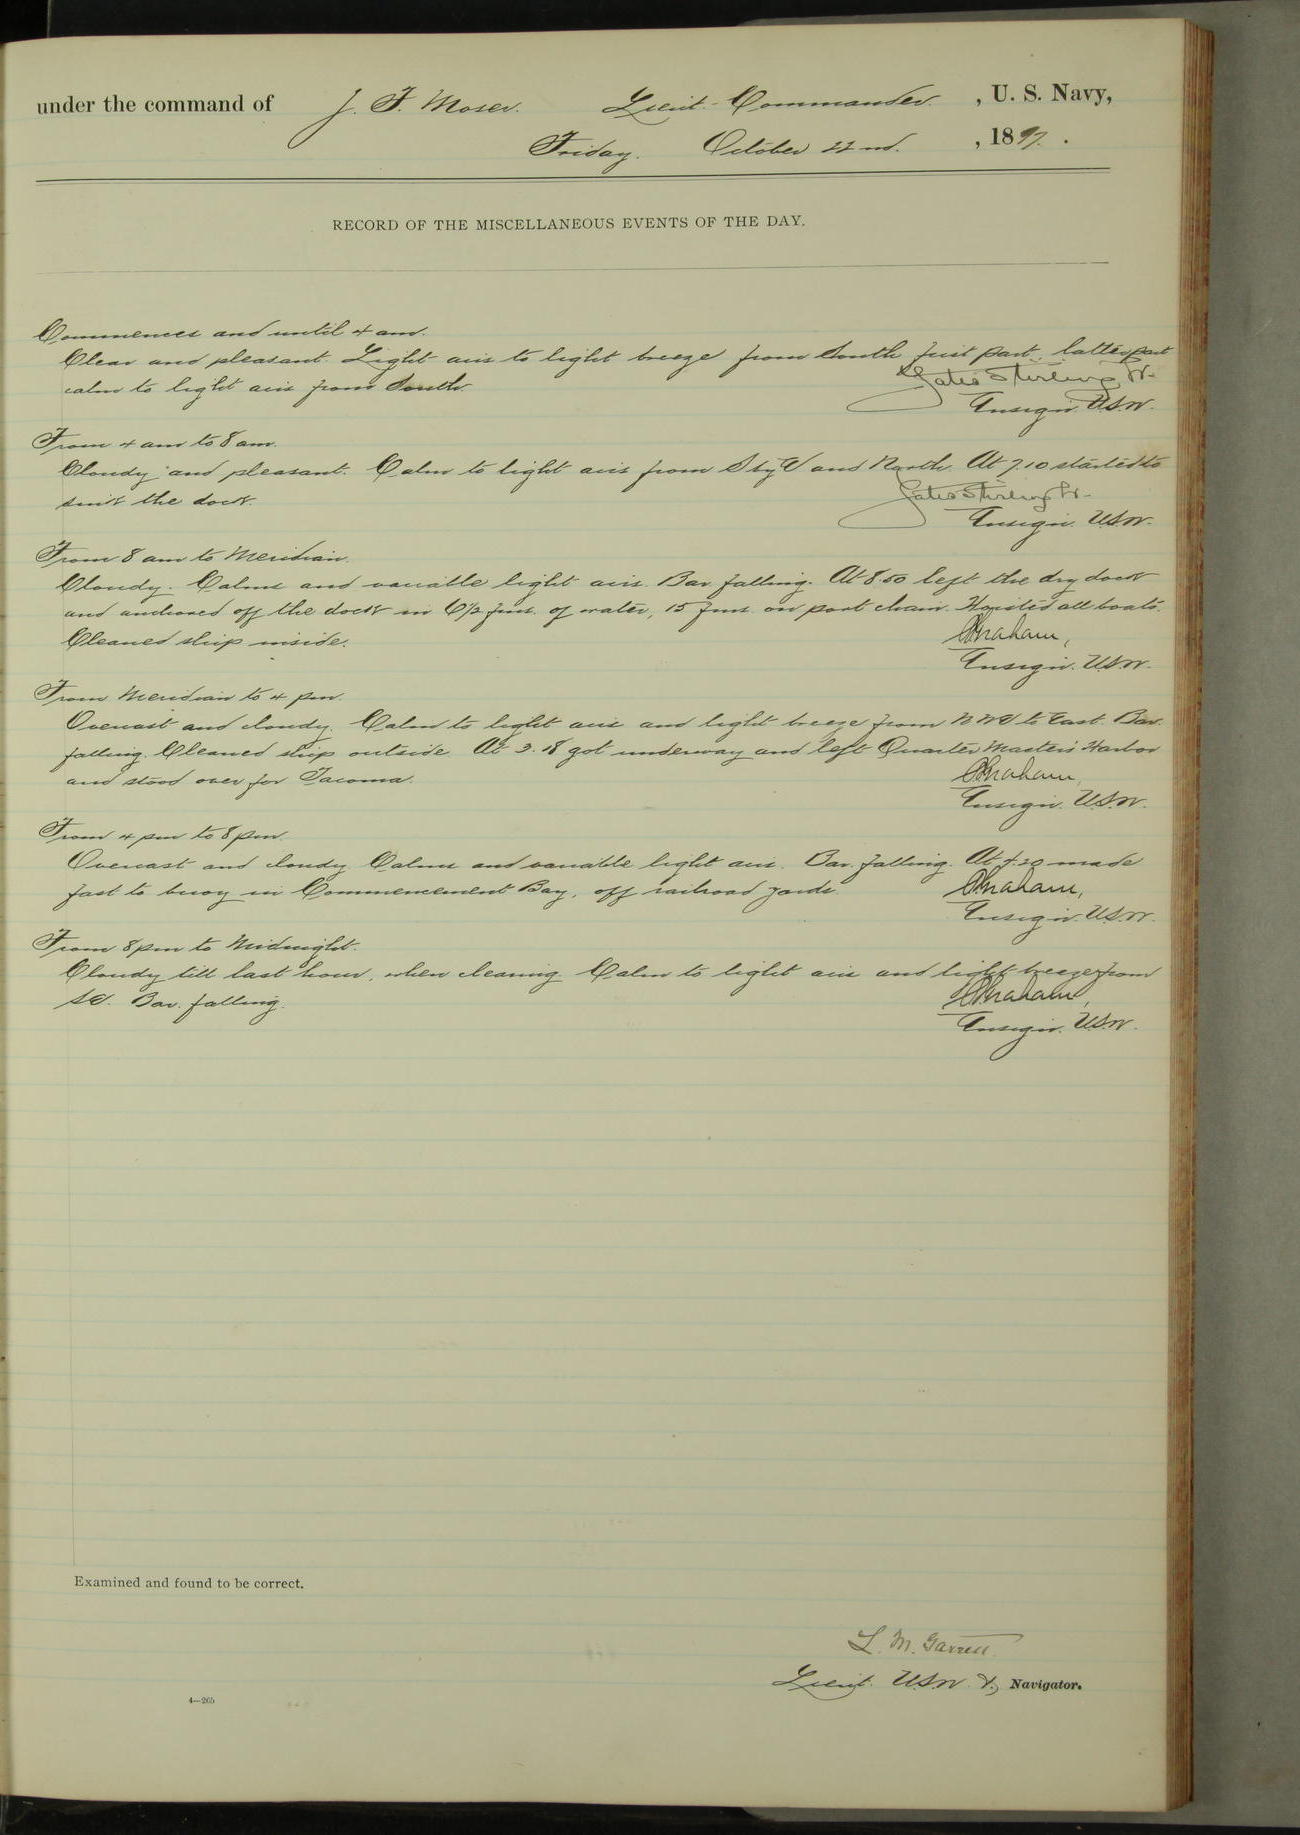 under the command of J. F. Moser. Lieut. Commander. , U. S. Navy,
Friday. October 22nd. , 1897.
RECORD OF THE MISCELLANEOUS EVENTS OF THE DAY.
Commences and until 4 am.
Clear and pleasant. Light airs to light breeze from South first part, latter part
calm to light airs from South.
Yates Stirling Jr.
Ensign. U.S.N.
From 4 am to 8 am.
Cloudy and pleasant. Calm to light airs from S by W and North. At 7.10 started to
sink the dock.
Yates Stirling Jr.
Ensign. U.S.N.
From 8 am to Meridian.
Cloudy. Calms and variable light airs. Bar. falling. At 8.50 left the dry dock
and anchored off the dock in 6½ fms. of water, 15 fms. on port chain. Hoisted all boats.
Cleaned ship inside.
Ensign. U.S.N.
From Meridian to 4 pm.
Overcast and cloudy. Calm to light airs and light breeze from NNW to East. Bar.
falling. Cleaned ship outside. At 3.18 got underway and left Quarter Masters Harbor
and stood over for Tacoma.
Ensign. U.S.N.
From 4 pm to 8 pm.
Overcast and cloudy. Calms and variable light airs. Bar. falling. At 4.20 made
fast to buoy in Commencement Bay, off railroad yards.
Ensign. U.S.N.
From 8 pm to Midnight.
Cloudy till last hour, when clearing. Calm to light airs and light breeze from
SW. Bar. falling.
Ensign. U.S.N.
Examined and found to be correct.
L. M. Garrett.
Lieut. U.S.N. &, Navigator.
4—265